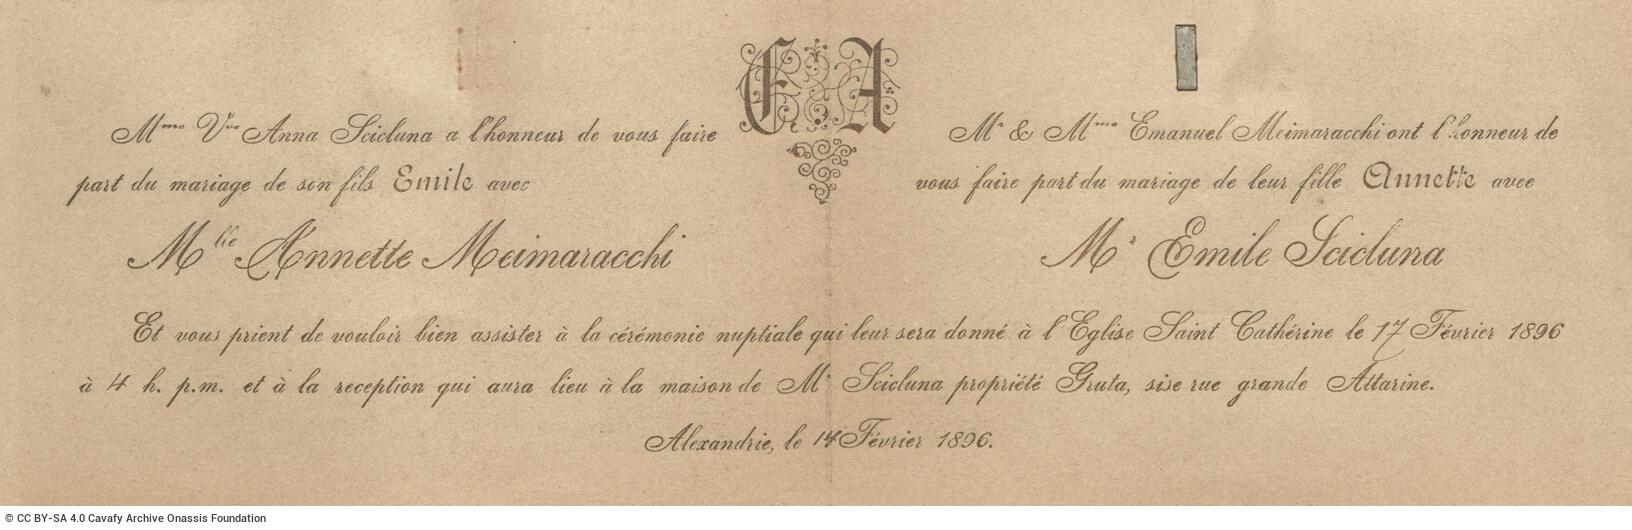 E A
Mme Vve Anna Scicluna a l'honneur de vous faire
part du mariage de son fils Emile avec
Mlle Annette Meimaracchi
Mr & Mme Emanuel Meimaracchi ont l'honneur de
vous faire part du mariage de leur fille Annette avec
Mr Emile Scicluna
Et vous prient de vouloir bien assister à la cérémonie nuptiale qui leur sera donné à l'Eglise Saint Cathérine le 17 Février 1896
à 4 h. p.m. et à la reception qui aura lieu à la maison de Mr Scicluna propriété Gruta, sise rue grande Attarine.
Alexandrie, le 14 Février 1896.
© CC BY-SA 4.0 Cavafy Archive Onassis Foundation